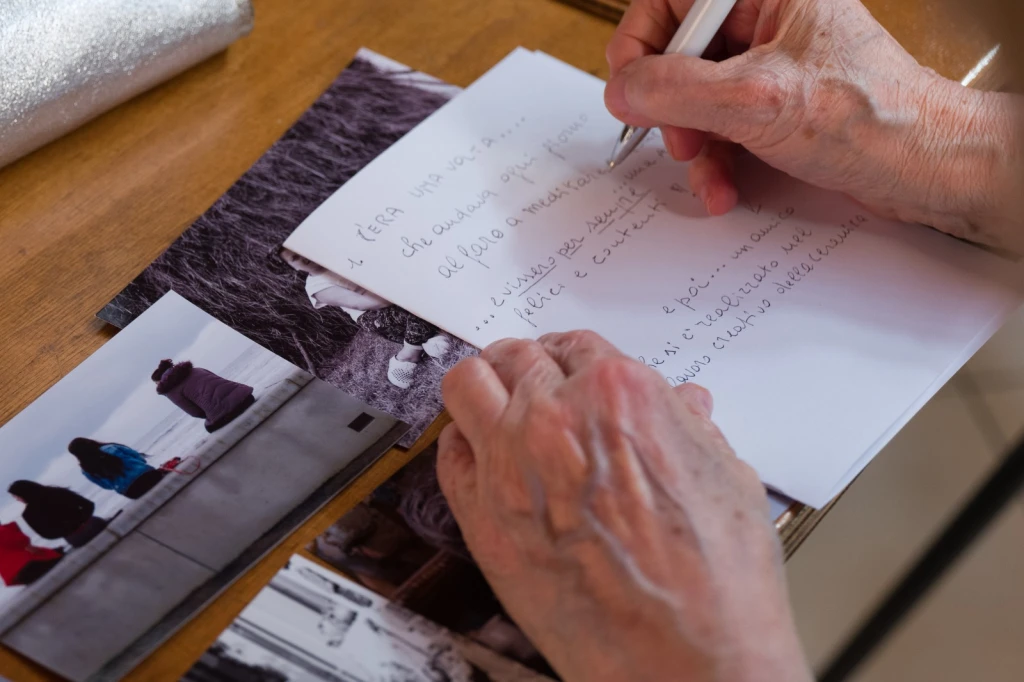 1 C'ERA UNA VOLTA....
che andava ogni giorno
al faro a meditare
... e vissero per sempre
felici e contenti
e poi... un amico
che si è realizzato nel
lavoro creativo della ceramica